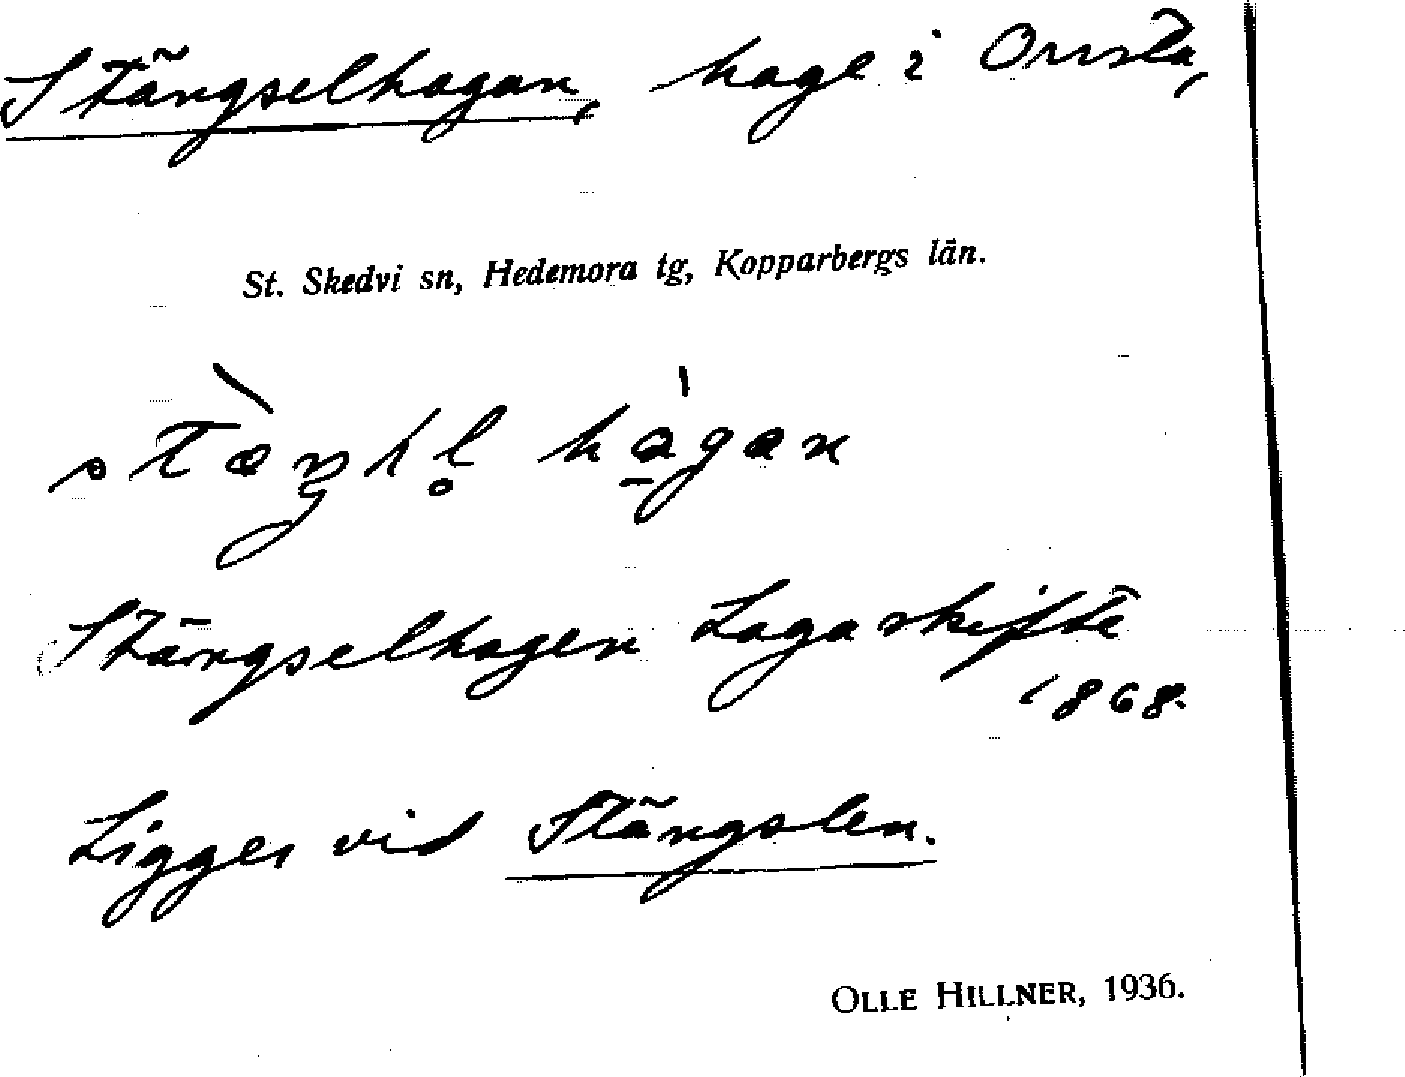 Stängselhagan, hage i Onsta,
St. Skedvi sn, Hedemora tg, Kopparbergs län.
hagan
Stängselhagen Laga skifte
1868.
Ligger vid Stängslen.
OLLE HILLNER, 1936.